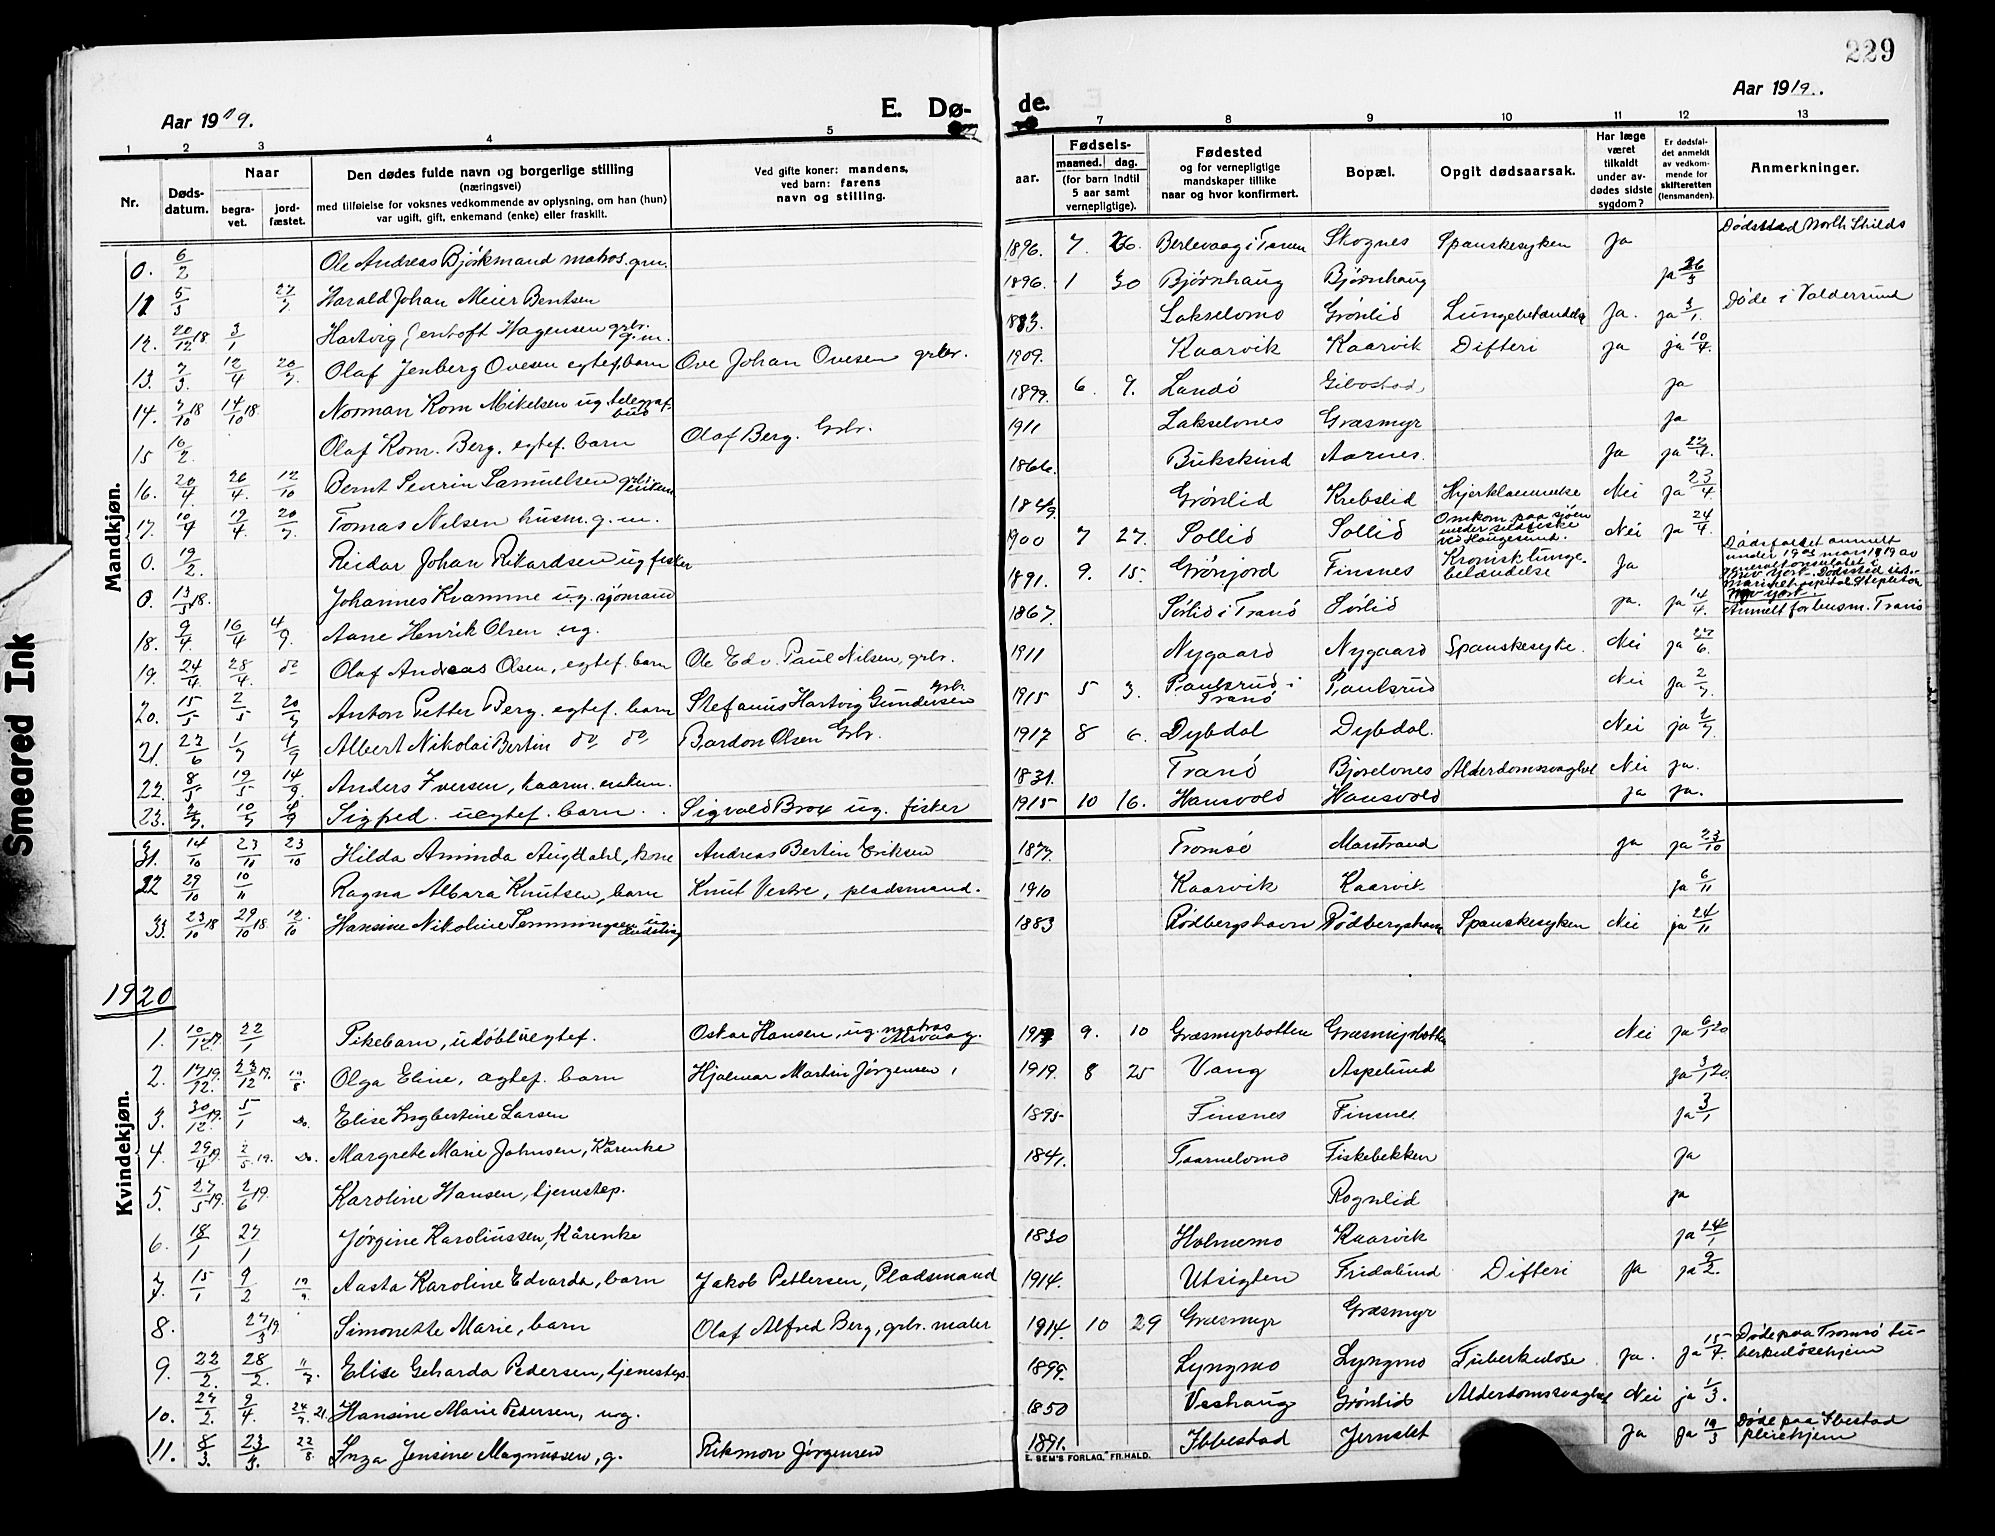 229
Aar 1919.
E. Dø-
de.
Aar 1919.
1 2 3 4 5
7 8 9 10 11 12 13
Nr.
Døds-
datum.
Naar
begra-
vet.
jord-
fæstet.
Den dødes fulde navn og borgerlige stilling
(næringsvei)
med tilføielse for voksnes vedkommende av oplysning, om han (hun)
var ugift, gift, enkemand (enke) eller fraskilt.
Ved gifte koner: mandens,
ved barn: farens
navn og stilling.
Fødsels-
aar.
maaned.
dag.
(for barn indtil
5 aar samt
vernepligtige).
Fødested
og for vernepligtige
mandskaper tillike
naar og hvor konfirmert.
Bopæl.
Opgit dødsaarsak.
Har læge
været
tilkaldt
under av-
dødes sidste
sygdom?
Er dødsfal-
det anmeldt
av vedkom-
mende for
skifteretten
(lensmanden).
Anmerkninger.
Smeared Ink
Mandkjøn.
0. 6/2 Ole Andreas Bjørkmand matros. gm. 1896. 7. 26. Berlevaag i Tanen Skognes Spanskesyken Ja Dødsstad North Shilds
11 5/3 27/7 Harald Johan Meier Bentsen 1896. 1 30 Bjørnhaug Bjørnhaug ja 26/3
12. 20/12 18 3/1 Hartvig Jentoft Hagensen grbr. g.m. 1883. Lakselvmo Grønlid Lungebetændelse Ja. ja 3/1. Døde i Valdersund
13. 7/3. 12/4 20/7. Olaf Jenberg Ovesen egtef. barn Ove Johan Ovesen grbr. 1909. Kaarvik Kaarvik Difteri ja ja 10/4.
14. 7/10 18 14/10 18. Norman Korn. Mikelsen ug. telegraf-
bud 1899. 6. 9. Landø Gibostad ja
15 16/2. Olaf Korn. Berg. egtef. barn Olaf Berg. Grbr. 1911 Lakselvnes Græsmyr ja
16. 20/4 26/4. 12/10 Bernt Severin Samuelsen grbr. enkem 1866. Bukskind Aarnes. Ja ja 22/4.
17. 10/4 19/4. 20/7. Tomas Nilsen husm. g.m. 1849. Grønlid Krebslid Hjerklammelse Nei ja 23/4.
0. 19/2. Reidar Johan Rikardsen ug fisker 1900 7 27. Sollid Sollid Omkom paa sjøen
under sildfiske
ved Haugesund. Nei ja 24/4.
0. 13/5 18. Johannes Kvamme ug. sjømand 1891. 9. 15. Grønjord Finsnes Kronisk lunge-
betændelse Ja Dødsfaldet anmelt
under 19de mars 1919 av
generalkonsulatet i
New York. Dødssted
Marinehospital Stapleton
New York.
18. 9/4. 16/4 4/9. Aane Henrik Olsen ug. 1867. Sørlid i Tranø Sørlid ja. ja 14/4. Anmelt forhusm. Tranø
19. 24/4. 28/4. do Olaf Andreas Olsen, egtef. barn Ole Edv. Paul Nilsen, grbr. 1911 Nygaard Nygaard Spanskesyke. Nei ja 27/6.
20. 15/5 2/5 20/7 Anton Petter Berg. egtef. barn Stefanus Hartvig Gundersen grbr. 1915 5 3. Paulsrud i
Tranø Paulsrud Nei ja 2/7.
21. 27/6 1/7 4/9 Albert Nikolai Bertin do do Bardon Olsen Grbr. 1917 8 6. Dybdal Dybdal. Nei ja 1/7.
22. 8/5 19/5 14/9. Anders Iversen, kaarm. enkem. 1831. Tranø Bjørelvnes Alderdomssvaghet Nei ja.
23. 2/7. 10/7 4/9 Sigfred. uegtef. barn. Sigvald Brox ug. fisker 1915 10 16. Hansvold Hansvold ja ja.
Kvindekjøn.
31. 14/10 23/10 23/10 Hilda Aminda Augdahl, kone Andreas Bertin Eriksen 1877. Tromsø Marstrand ja ja 23/10
32 29/10 10/11 Ragna Albara Knutsen, barn Knut Vestre, pladsmand. 1910 Kaarvik Kaarvik ja 6/11
33. 23/10 18 29/10 18. 12/10 Hansine Nikoline Semmingsen ug. 1883 Rødbergshavn Rødbergshavn Spanskesyken Nei ja 24/11
1920
1. 10/12 19. 22/1 Pikebarn, udøbt uegtef. Oskar Hansen, ug. matros
Alsvaag. 1919 9. 10 Græsmyrbotten Græsmyrbotten Nei ja 6/1 20
2. 17/12 19. 23/12 19. 19/8 Olga Eline, egtef. barn Hjalmar Martin Jørgensen, 1919. 8 25 Vang Aspelund ja 3/1 20.
3. 30/12 19. 5/1 Do. Elise Ingbertine Larsen 1895 Finsnes Finsnes. ja 3/1
4. 29/4 19. 2/5. 19. Do. Margrete Marie Johnsen, Kårenke 1841. Taarnelvmo Fiskebekken ja
5. 27/5 19. 2/6 19. Karoline Hansen, tjenestep. Rognlid ja
6. 18/1 27/1 Jørgine Karoliussen, Kårenke 1830 Holmemo Kaarvik ja 24/1
7. 15/1 9/2 19/9. Aasta Karoline Edvarda, barn Jakob Pettersen, Pladsmand 1914. Utsigten Fridalund Difteri ja ja 9/2.
8. 27/3 19. Simonette Marie, barn Olaf Alfred Berg, grbr. maler 1914. 10 29 Græsmyr Græsmyr
9. 22/2. 28/2. 11/7 Elise Geharda Pedersen, tjenestep. 1899. Lyngmo Lyngmo Tuberkulose Ja. Ja 15/7. Døde paa Tromsø tu-
berkulosehjem
10. 27/2. 9/4. 24/7. 21. Hansine Marie Pedersen, ug. 1850 Veshaug Grønlid Alderdomssvaghet Nei ja 1/3.
11. 8/3. 23/3. 22/8 Inga Jensine Magnussen, g. Rikmon Jørgensen 1891. Ibbestad Jernslet Ja Ja 19/3 Døde paa Ibestad
pleiehjem
E. SEM'S FORLAG, FR.HALD.